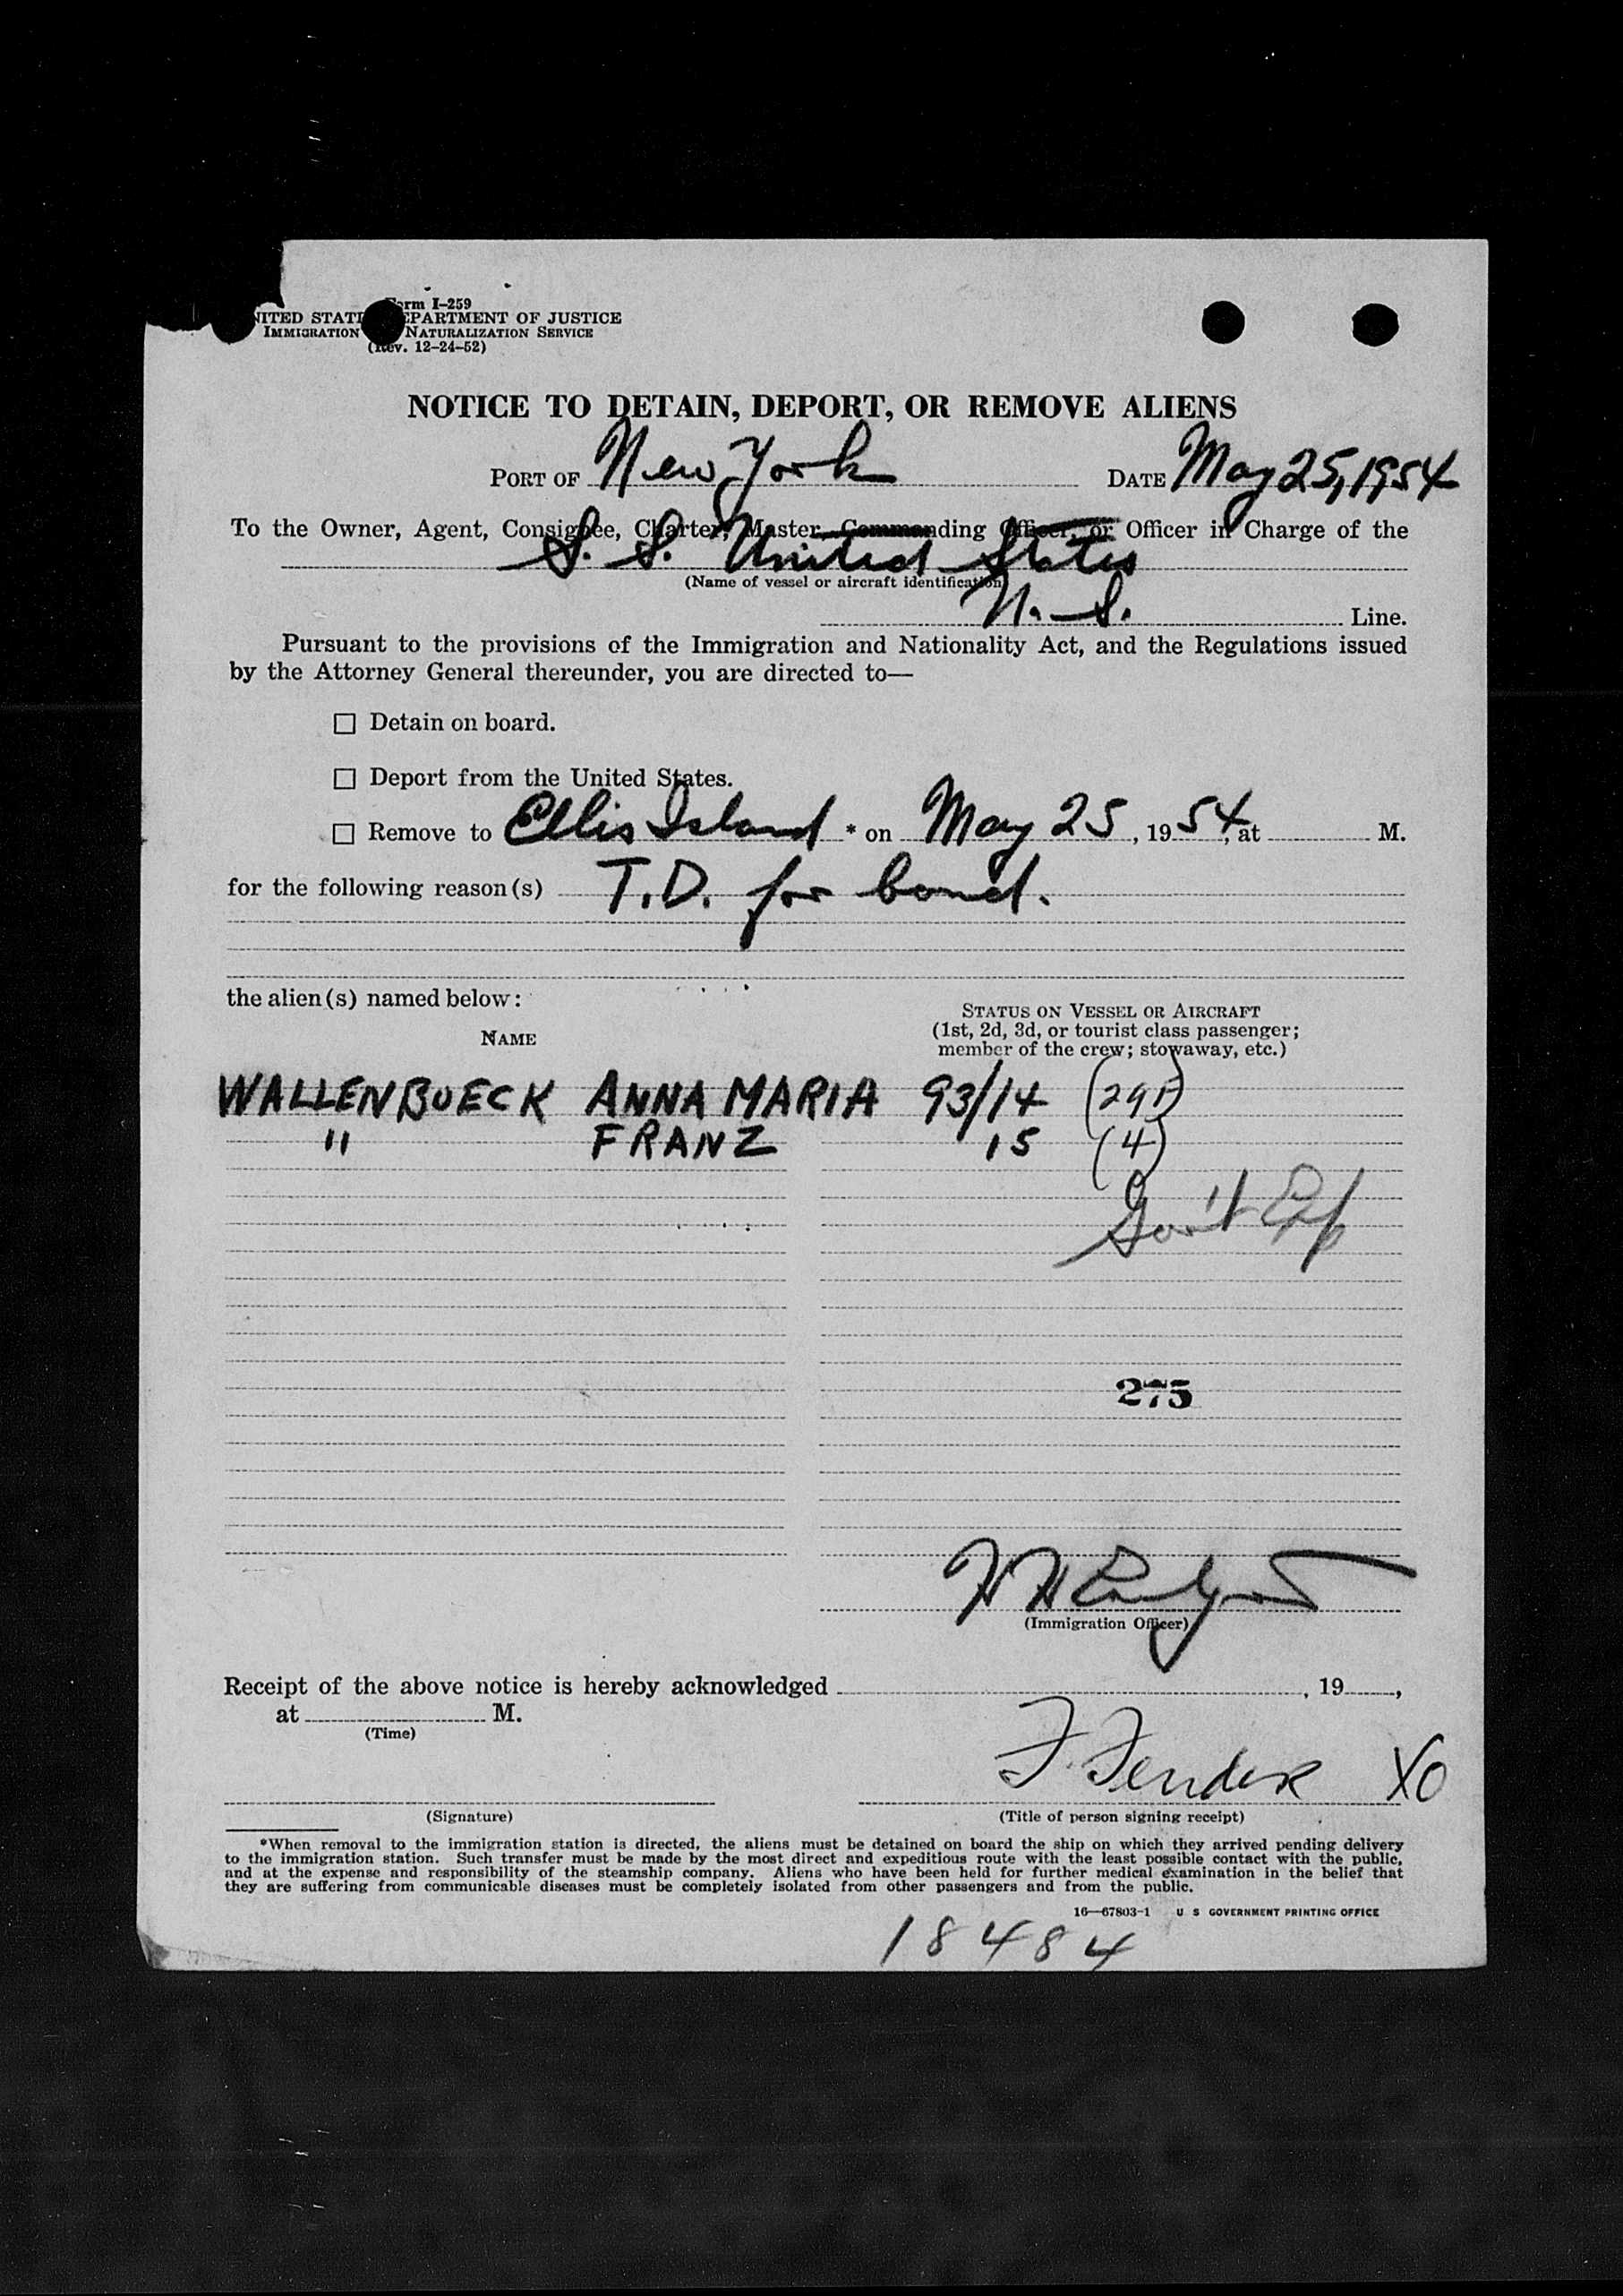 Form I-259
UNITED STATES DEPARTMENT OF JUSTICE
IMMIGRATION NATURALIZATION SERVICE
(Rev. 12-24-52)
NOTICE TO DETAIN, DEPORT, OR REMOVE ALIENS
PORT OF New York DATE May 25, 1954
To the Owner, Agent, Consignee, Charter, Master, Commanding Officer, or Officer in Charge of the
S. S. United States
(Name of vessel or aircraft identification)
Line.
Pursuant to the provisions of the Immigration and Nationality Act, and the Regulations issued
by the Attorney General thereunder, you are directed to—
☐ Detain on board.
☐ Deport from the United States.
☐ Remove to Ellis Island * on May 25, 1954, at M.
for the following reason(s) T.D. for bond.
the alien(s) named below:
NAME
STATUS ON VESSEL OR AIRCRAFT
(1st, 2d, 3d, or tourist class passenger;
member of the crew; stowaway, etc.)
WALLENBOECK ANNA MARIA 93/14
" FRANZ 15 (4)
Gov't
275
(Immigration Officer)
Receipt of the above notice is hereby acknowledged , 19 ,
at M.
(Time)
F. Fender XO
(Signature) (Title of person signing receipt)
*When removal to the immigration station is directed, the aliens must be detained on board the ship on which they arrived pending delivery
to the immigration station. Such transfer must be made by the most direct and expeditious route with the least possible contact with the public,
and at the expense and responsibility of the steamship company. Aliens who have been held for further medical examination in the belief that
they are suffering from communicable diseases must be completely isolated from other passengers and from the public.
16—67803-1 U S GOVERNMENT PRINTING OFFICE
18484